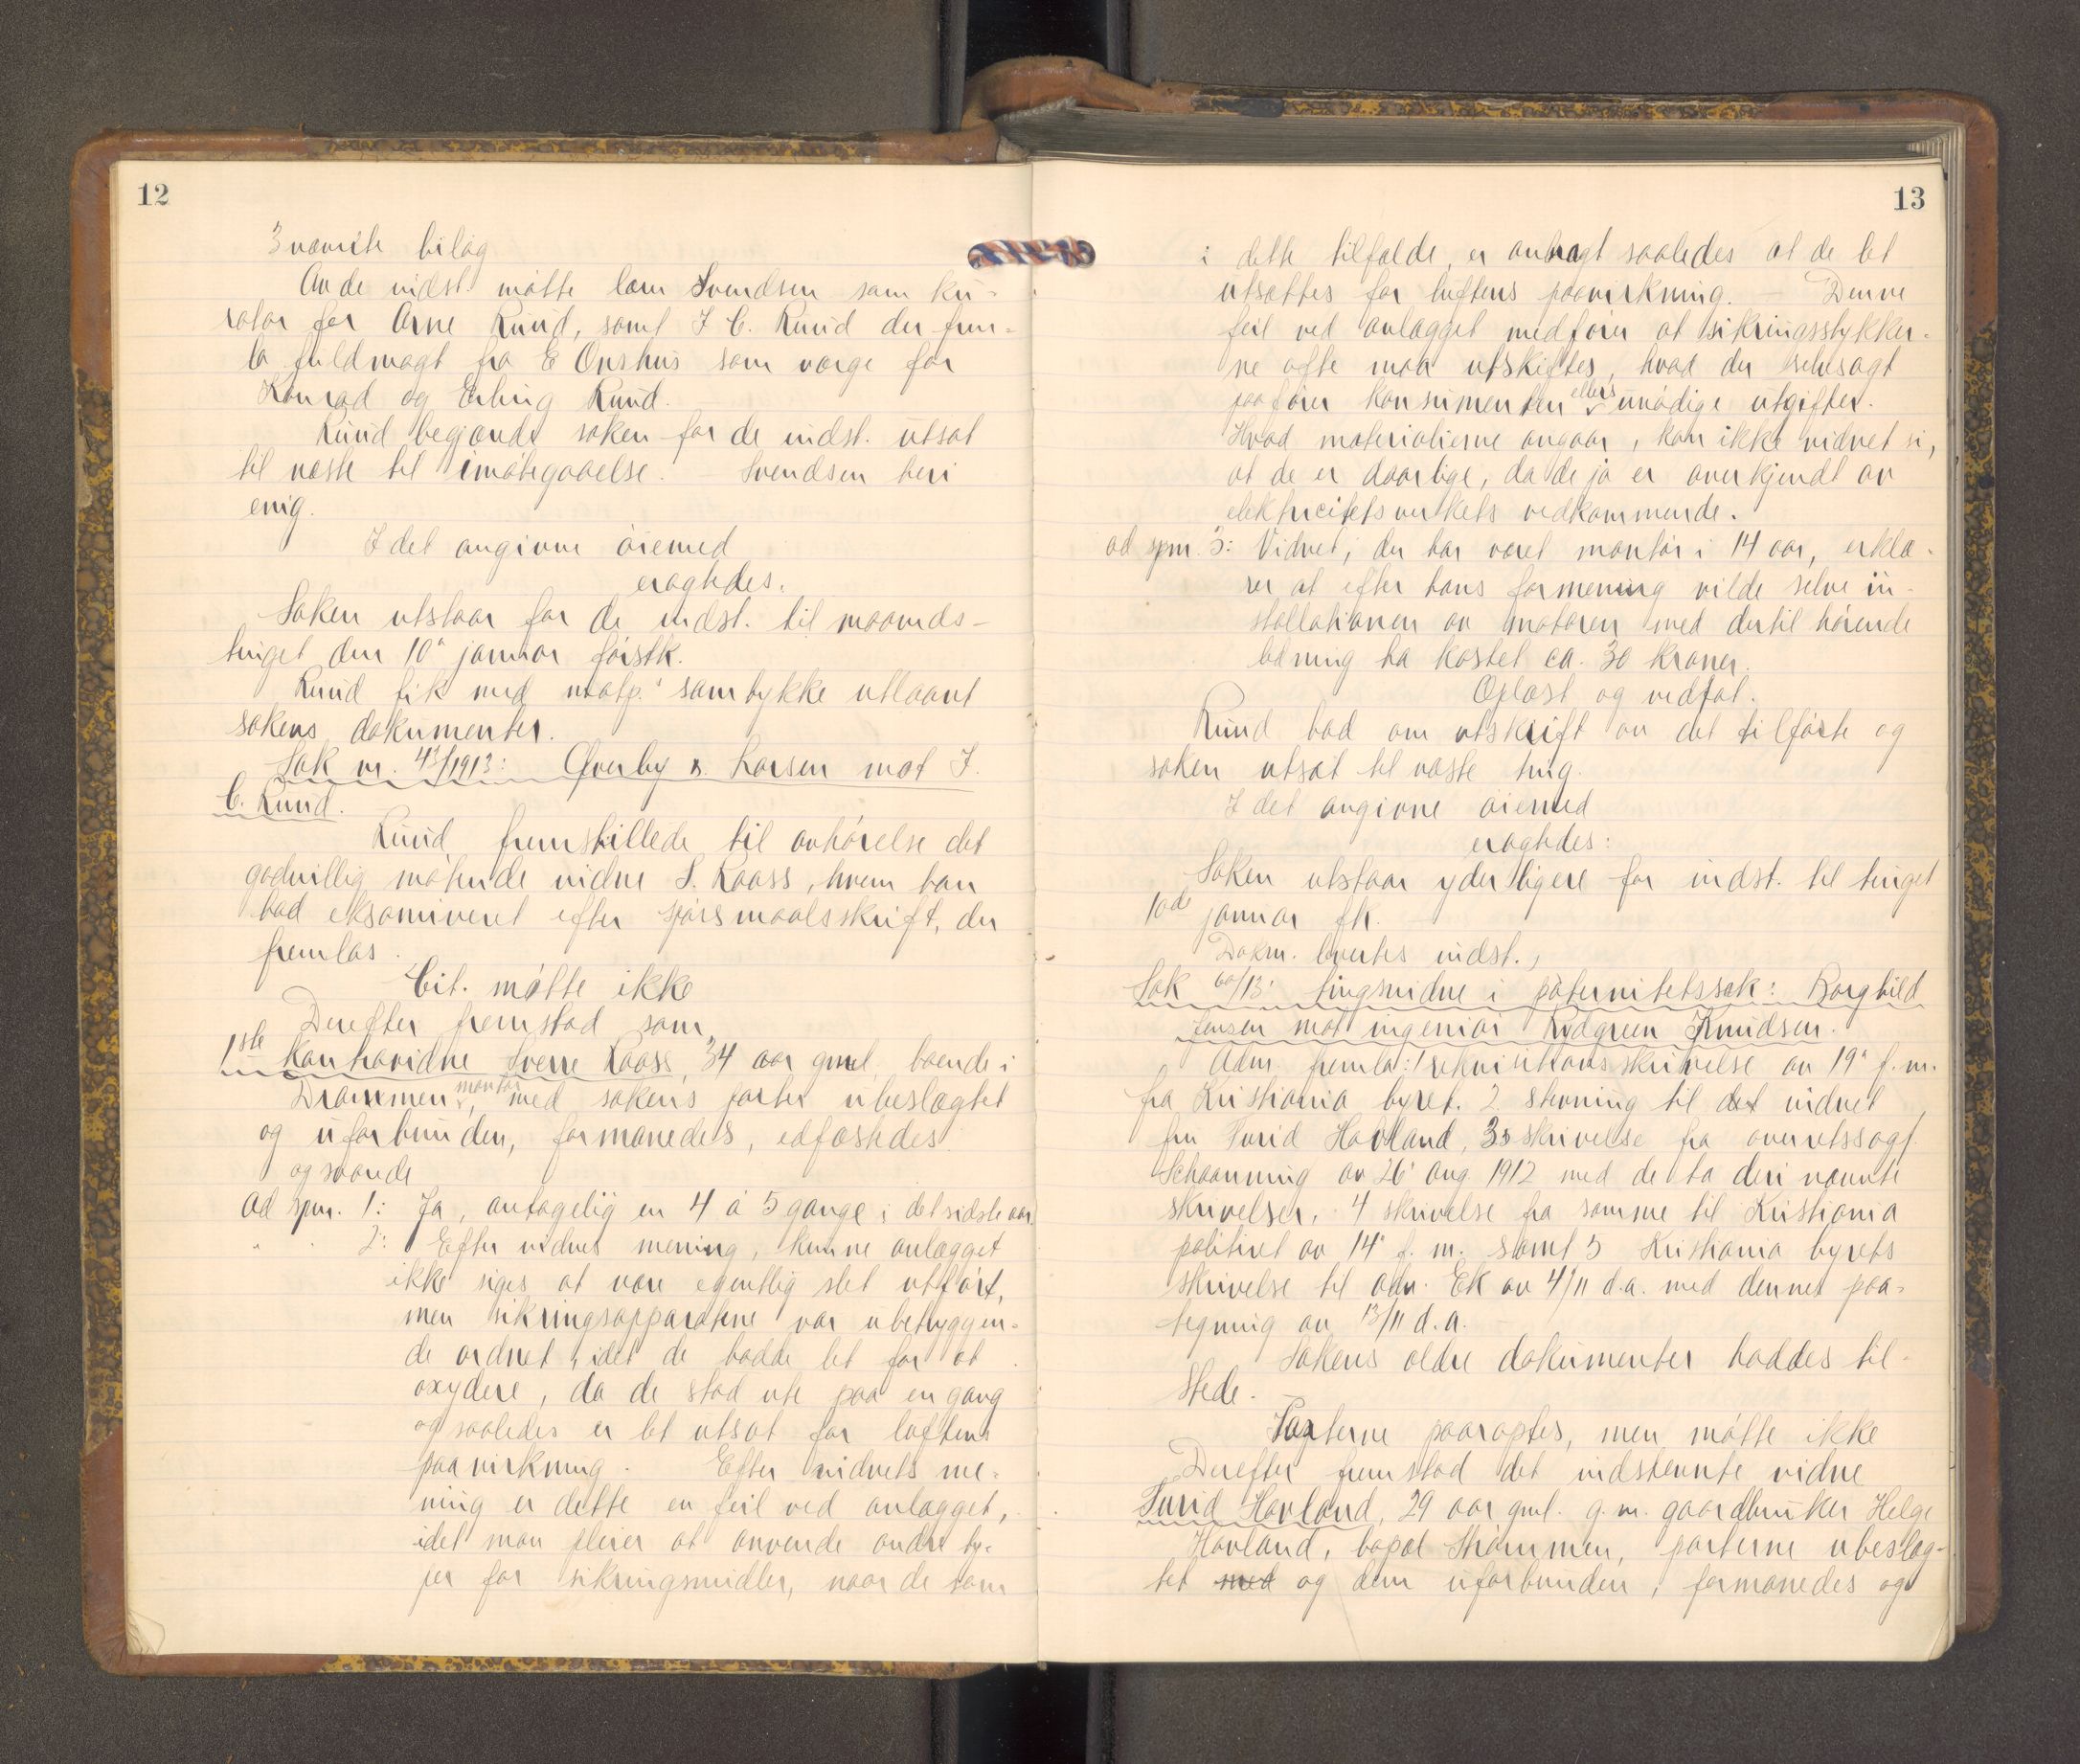 12
3 nævnte bilag
Av de indst. møtte lærer Svendsen som ku-
rator for Arne Ruud, samt J C. Ruud der frem-
la fuldmagt fra E Onshus som værge for
Konrad og Erling Ruud.
Ruud begjærede saken for de indst. utsat
til næste til imøtegaaelse. – Svendsen heri
enig.
I det angivne øiemed
eragtedes.
Saken utstaar for de indst. til maaneds-
tinget den 10' januar førstk.
Ruud fik med motp.' samtykke utlaant
sakens dokumenter.
Sak nr. 43/1913: Øverby & Larsen mot J.
C. Ruud.
Ruud fremstillede til avhørelse det
godvillig møtende vidne S. Raass, hvem han
bad eksamineret efter spørsmaalsskrift, der
fremlas.
Cit. møtte ikke
Derefter fremstod som
1ste Kontravidne Sverre Raass, 34 aar gml, boende i
Drammen, montør, med sakens parter ubeslægtet
og uforbunden, formanedes, edfæstedes
og svarede
ad spm. 1: Ja, antagelig en 4 à 5 gange i det sidste aar
" " 2: Efter vidnets mening, kunne anlægget
ikke siges at være egentlig slet utført,
men sikringsapparatene var ubetryggen-
de ordnet, idet de hadde let for at
oxydere, da de stod ute paa en gang
og saaledes er let utsat for luftens
paavirkning. Efter vidnets me-
ning er dette en feil ved anlægget,
idet man pleier at anvende andre ty-
per for sikringsmidler, naar de som
13
i dette tilfælde, er anbragt saaledes at de let
utsættes for luftens paavirkning. – Denne
feil ved anlægget medfører at sikringsstykker-
ne ofte maa utskiftes, hvad der selvsagt
paafører konsumenten ellers unødige utgifter.
Hvad materialierne angaar, kan ikke vidnet si,
at de er daarlige, da de jo er anerkjendt av
elektricitetsverkets vedkommende.
ad spm. 3: Vidnet, der har været montør i 14 aar, erklæ-
rer at efter hans formening vilde selve in-
stallationen av motoren med dertil hørende
ledning ha kostet ca. 30 kroner.
Oplæst og vedtat.
Ruud bad om utskrift av det tilførte og
saken utsat til næste ting.
I det angivne øiemed
eragtedes:
Saken utstaar yderligere for indst. til tinget
10de januar fk.
Dokm. levertes indst.,
Sak 60/13: Tingsvidne i paternitetssak: Borghild
Jensen mot ingeniør Rydgreen Knudsen.
Adm. fremla: 1 rekvisitionsskrivelse av 19' f. m.
fra Kristiania byret. 2 stevning til det vidnet,
fru Turid Havland, 3 skrivelse fra overretssagf.
Schaanning av 26' aug. 1912 med de to deri nævnte
skrivelser, 4 skrivelse fra samme til Kristiania
politiret av 14' f. m. samt 5 Kristiania byrets
skrivelse til adv. Ek av 4/11 d.a. med dennes paa-
tegning av 13/11 d.a.
Sakens ældre dokumenter haddes til-
stede.
Parterne paaroptes, men møtte ikke
Derefter fremstod det indstevnte vidne
Turid Havland, 29 aar gml. g. m. gaardbruker Helge
Havland, bopæl Strømmen, parterne ubeslæg-
tet med og dem uforbunden, formanedes og